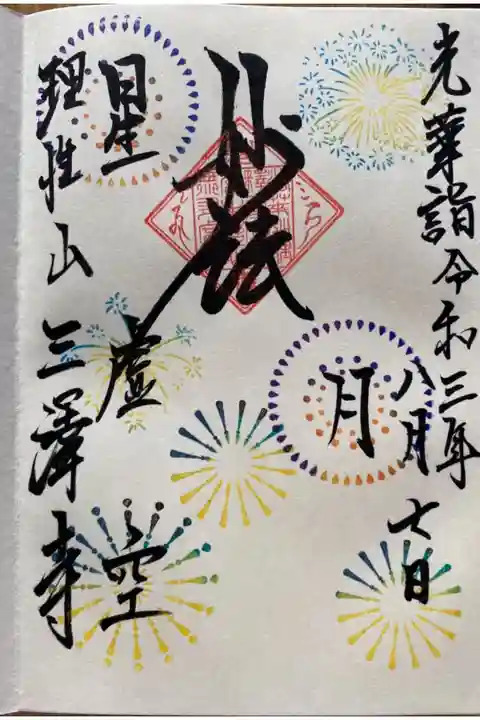 光華詣 令和三年
八月七日
月
妙法
虚空
星
理性山 三澤寺